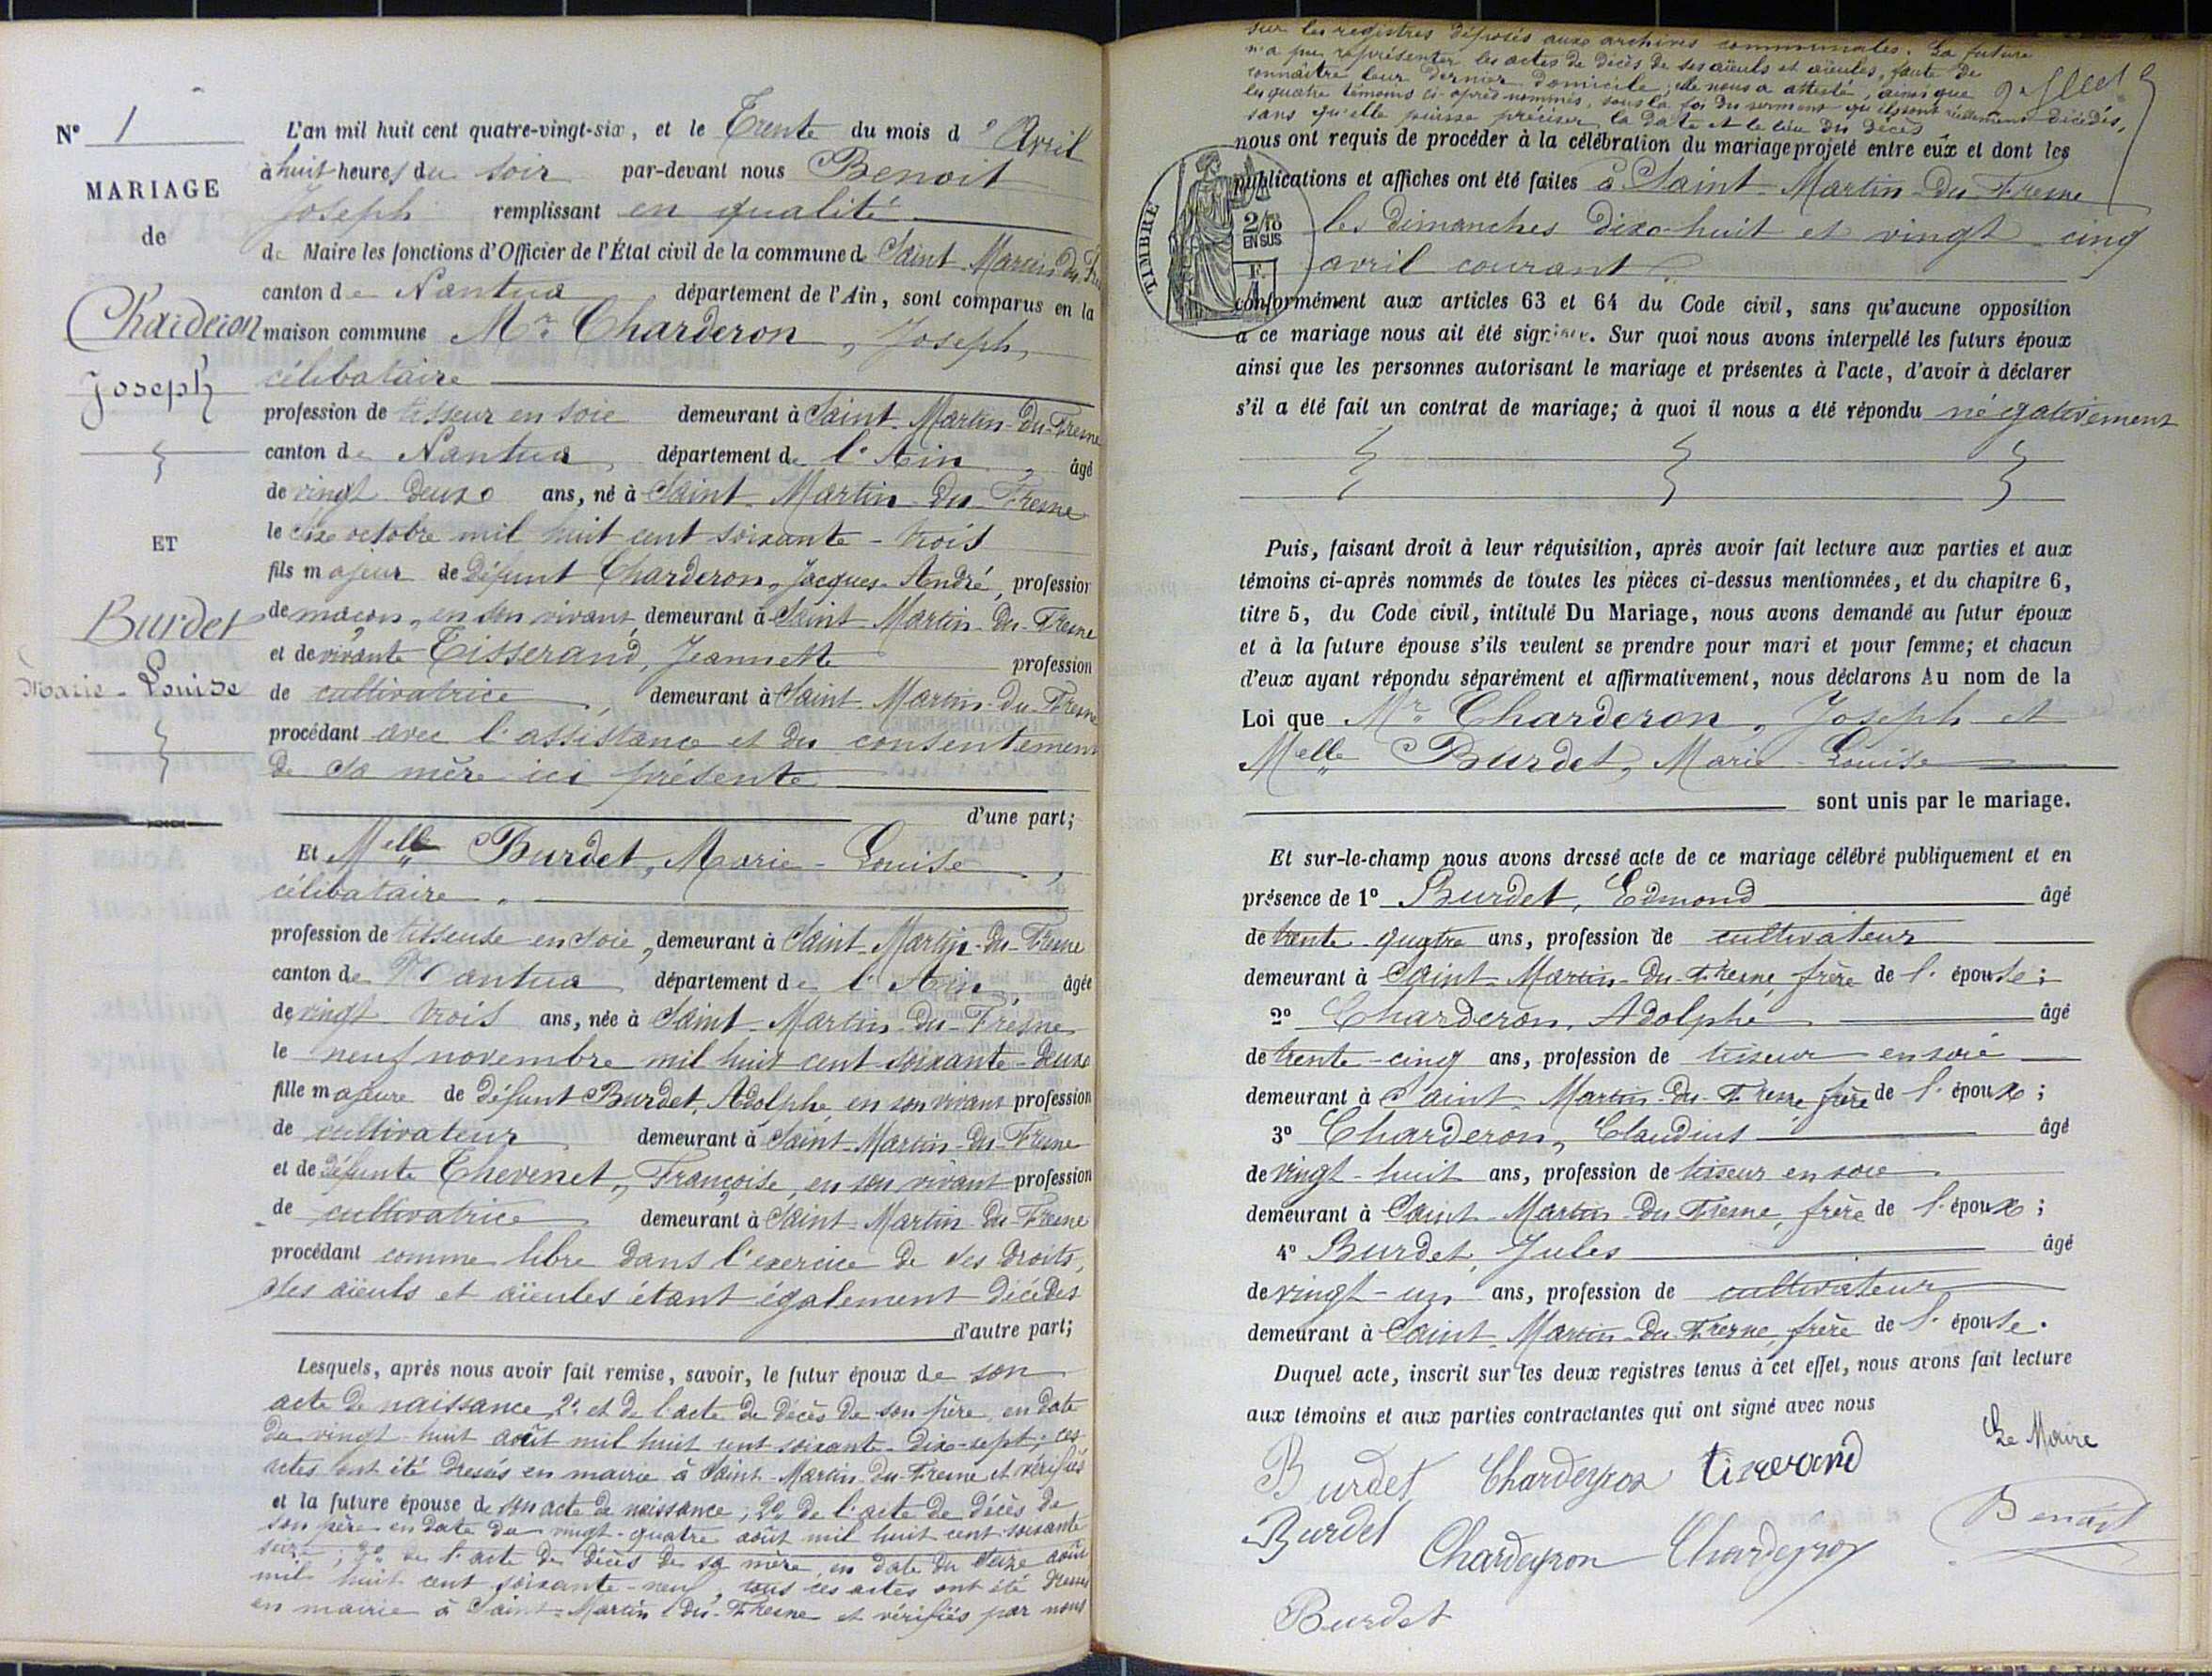 N° 1
MARIAGE
de
Charderon
Joseph
ET
Burdet
Marie-Louise
L'an mil huit cent quatre-vingt-six, et le Trente du mois d'Avril
à huit heures du soir par-devant nous Benoit
Joseph remplissant en qualité
de Maire les fonctions d'Officier de l'État civil de la commune de Saint-Martin-du-Fr
canton de Nantua département de l'Ain, sont comparus en la
maison commune Mr Charderon, Joseph,
célibataire
profession de tisseur en soie demeurant à Saint-Martin-du-Fresne
canton de Nantua, département de l'Ain, âgé
de vingt deux ans, né à Saint-Martin-du-Fresne
le six octobre mil huit cent soixante-trois
fils majeur de défunt Charderon, Jacques-André, profession
de maçon, en son vivant, demeurant à Saint-Martin-du-Fresne
et de vivante Tisserand, Jeannette profession
de cultivatrice, demeurant à Saint-Martin-du-Fresne
procédant avec l'assistance et du consentement
de sa mère ici présente
d'une part;
Et Melle Burdet, Marie-Louise,
célibataire,
profession de tisseuse en soie, demeurant à Saint-Martin-du-Fresne
canton de Nantua département de l'Ain, âgée
de vingt trois ans, née à Saint-Martin-du-Fresne
le neuf novembre mil huit cent soixante-deux
fille majeure de défunt Burdet, Adolphe, en son vivant profession
de cultivateur demeurant à Saint-Martin-du-Fresne
et de défunte Thevenet, Françoise, en son vivant profession
de cultivatrice demeurant à Saint-Martin-du-Fresne
procédant comme libre dans l'exercice de ses droits,
ses aïeuls et aïeules étant également décédés
d'autre part;
Lesquels, après nous avoir fait remise, savoir, le futur époux de son
acte de naissance, 2° et de l'acte de décès de son père, en date
du vingt-huit août mil huit cent soixante-dix-sept; ces
actes ont été dressés en mairie à Saint-Martin-du-Fresne et vérifiés
et la future épouse de son acte de naissance; 2° de l'acte de décès de
son père en date du vingt-quatre août mil huit cent soixante
; 3° de l'acte de décès de sa mère, en date du août
mil huit cent soixante-neuf, tous ces actes ont été dressés
en mairie à Saint-Martin-du-Fresne et vérifiés par nous
sur les registres déposés aux archives communales. La future
n'a pu représenter les actes de décès de ses aïeuls et aïeules, faute de
connaître leur dernier domicile; elle nous a attesté, ainsi que
les quatre témoins ci-après nommés, sous la foi du serment qu'ils sont réellement décédés,
sans qu'elle puisse préciser la date et le lieu du décès
nous ont requis de procéder à la célébration du mariage projeté entre eux et dont les
publications et affiches ont été faites à Saint-Martin-du-Fresne
les dimanches dix-huit et vingt-cinq
avril courant
TIMBRE
2/10
EN SUS
F.
conformément aux articles 63 et 64 du Code civil, sans qu'aucune opposition
à ce mariage nous ait été signifiée. Sur quoi nous avons interpellé les futurs époux
ainsi que les personnes autorisant le mariage et présentes à l'acte, d'avoir à déclarer
s'il a été fait un contrat de mariage; à quoi il nous a été répondu négativement
Puis, faisant droit à leur réquisition, après avoir fait lecture aux parties et aux
témoins ci-après nommés de toutes les pièces ci-dessus mentionnées, et du chapitre 6,
titre 5, du Code civil, intitulé Du Mariage, nous avons demandé au futur époux
et à la future épouse s'ils veulent se prendre pour mari et pour femme; et chacun
d'eux ayant répondu séparément et affirmativement, nous déclarons Au nom de la
Loi que Mr Charderon, Joseph et
Melle Burdet, Marie-Louise
sont unis par le mariage.
Et sur-le-champ nous avons dressé acte de ce mariage célébré publiquement et en
présence de 1° Burdet, Edmond âgé
de trente-quatre ans, profession de cultivateur
demeurant à Saint-Martin-du-Fresne, frère de l'épouse;
2° Charderon, Adolphe âgé
de trente-cinq ans, profession de tisseur en soie
demeurant à Saint-Martin-du-Fresne frère de l'époux;
3° Charderon, Claudius âgé
de vingt-huit ans, profession de tisseur en soie
demeurant à Saint-Martin-du-Fresne, frère de l'époux;
4° Burdet, Jules âgé
de vingt-un ans, profession de cultivateur
demeurant à Saint-Martin-du-Fresne, frère de l'épouse.
Duquel acte, inscrit sur les deux registres tenus à cet effet, nous avons fait lecture
aux témoins et aux parties contractantes qui ont signé avec nous
Le Maire
Burdet Chardeyron tisserand
Burdet Chardeyron Chardeyron Benoit
Burdet